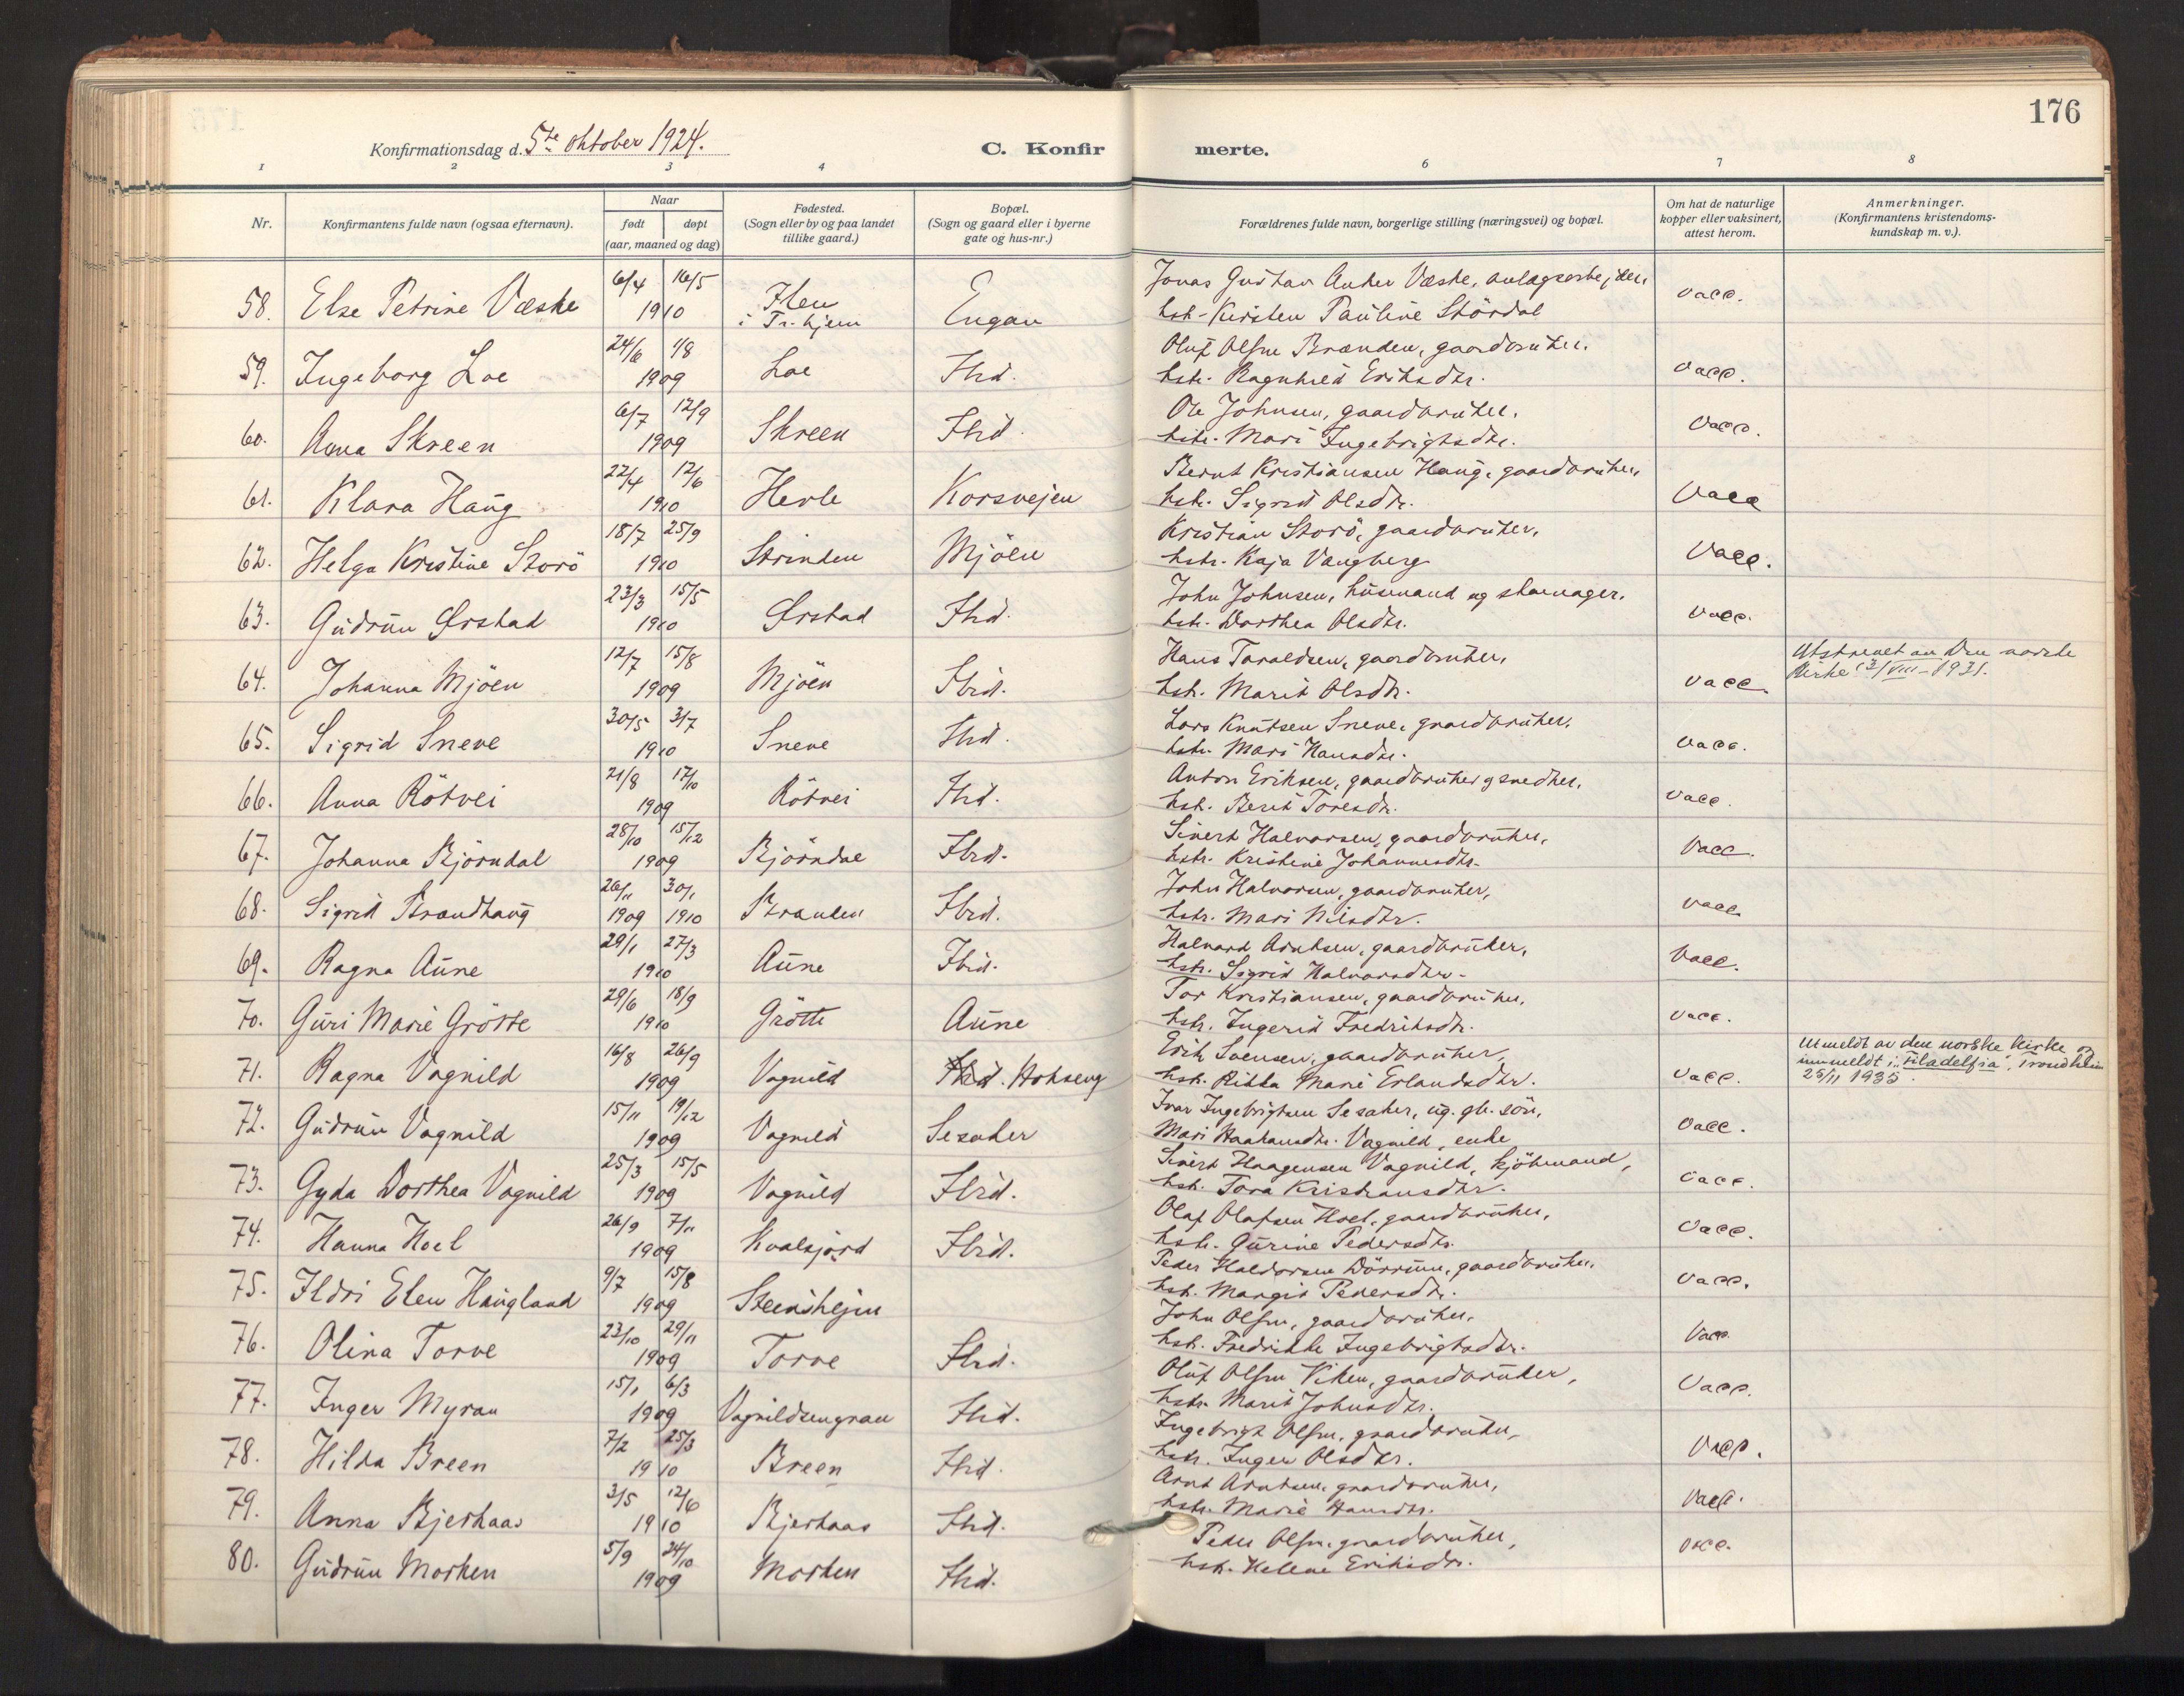 176
Konfirmationsdag d. 5te oktober 1924.
C. Konfirmerte.
1 2 3 4 6 7 8
Nr.
Konfirmantens fulde navn (ogsaa efternavn).
Naar
født døpt
(aar, maaned og dag)
Fødested.
(Sogn eller by og paa landet
tillike gaard.)
Bopæl.
(Sogn og gaard eller i byerne
gate og hus-nr.)
Forældrenes fulde navn, borgerlige stilling (næringsvei) og bopæl.
Om hat de naturlige
kopper eller vaksinert,
attest herom.
Anmerkninger.
(Konfirmantens kristendoms-
kundskap m. v.).
58. Else Petrine Væske 6/4 16/5 1910 Ilen i Tr.hjem Engan Jonas Gustav Anker Væske, anlægsarbejder, vacc.
hstr. Kirsten Pauline Stördal
59. Ingeborg Loe 24/6 1/8 1909 Loe Ibid. Oluf Olsen Brænden, gaardbruker. vacc.
hstr. Ragnhild Eriksdtr.
60. Anna Skreen 6/7 12/9 1909 Skreen Ibid. Ole Johnsen, gaardbruker. vacc.
hstr. Mari Ingebrigtsdtr.
61. Klara Haug 22/4 12/6 1910 Herle Korsvejen Bernt Kristiansen Haug, gaardbruker, vacc
hstr. Sigrid Olsdtr.
62. Helga Kristine Storö 18/7 25/9 1910 Strinden Mjöen Kristian Storö, gaardbruker, vacc.
hstr. Kaja Vangberg
63. Gudrun Ørstad 23/3 15/5 1910 Ørstad Ibid. John Johnsen, husmand og skomager. vacc.
hstr. Dorthea Olsdtr.
64. Johanna Mjöen 12/7 15/8 1909 Mjöen Ibid. Hans Taraldsen, gaardbruker, vacc. Utskrevet av Den norske
hstr. Marit Olsdtr. Kirke 13/VIII - 1931.
65. Sigrid Sneve 30/5 3/7 1910 Sneve Ibid. Lars Knutsen Sneve, gaardbruker. vacc.
hstr. Mari Hansdtr.
66. Anna Rötvei 21/8 17/10 1909 Rötvei Ibid. Anton Eriksen, gaardbruker og snedker. vacc.
hstr. Berit Toresdtr.
67. Johanna Björndal 28/10 15/12 1909 Björndal Ibid. Sivert Halvorsen, gaardbruker, vacc.
hstr. Kristine Johannesdtr.
68. Sigrid Strandhaug 26/11 1909 30/1 1910 Stranden Ibid. John Halvorsen, gaardbruker, vacc.
hstr. Mari Nilsdtr.
69. Ragna Aune 29/1 27/3 1910 Aune Ibid. Halvard Arntsen, gaardbruker, vacc.
hstr. Sigrid Halvorsdtr.
70. Guri Marie Grötte 29/6 18/9 1910 Grötte Aune Tor Kristiansen, gaardbruker, vacc.
hstr. Ingerid Fredriksdtr.
71. Ragna Vognild 16/8 26/9 1909 Vognild Ibid. Hokseng Erik Svensen, gaardbruker, vacc. Utmeldt av den norske kirke og
hstr. Rikka Marie Erlandsdtr. innmeldt i "Filadelfia", Trondheim
25/11 1935.
72. Gudrun Vognild 15/11 19/12 1909 Vognild Sesaker Ivar Ingebrigtsen Sesaker, ug. gb. sön, vacc.
Mari Haakansdtr. Vognild, enke
73. Gyda Dorthea Vognild 25/3 15/5 1909 Vognild Ibid. Sivert Haagensen Vognild, kjöbmand, vacc.
hstr. Tora Kristiansdtr.
74. Hanna Hoel 26/9 7/11 1909 Kvalsjord Ibid. Olaf Olafsen Hoel, gaardbruker, vacc.
hstr. Gurine Pedersdtr.
75. Ildri Elen Haugland 9/7 15/8 1909 Steinshejm Peder Haldorsen Dörrum, gaardbruker. vacc.
hstr. Margit Pedersdtr.
76. Olina Torve 23/10 29/11 1909 Torve Ibid. John Olsen, gaardbruker, vacc.
hstr. Fredrikke Ingebrigtsdtr.
77. Inger Myran 15/1 6/3 1909 Vognildsengran Ibid. Oluf Olsen Viken, gaardbruker, vacc.
hstr. Marit Johnsdtr.
78. Hilda Breen 7/2 25/3 1910 Breen Ibid. Ingebrigt Olsen, gaardbruker, vacc.
hstr. Inger Olsdtr.
79. Anna Bjerkaas 3/5 12/6 1910 Bjerkaas Ibid. Arnt Arntsen, gaardbruker, vacc.
hstr. Marie Hansdtr.
80. Gudrun Morken 5/9 24/10 1909 Morken Ibid. Peder Olsen, gaardbruker, vacc.
hstr. Helene Eriksdtr.